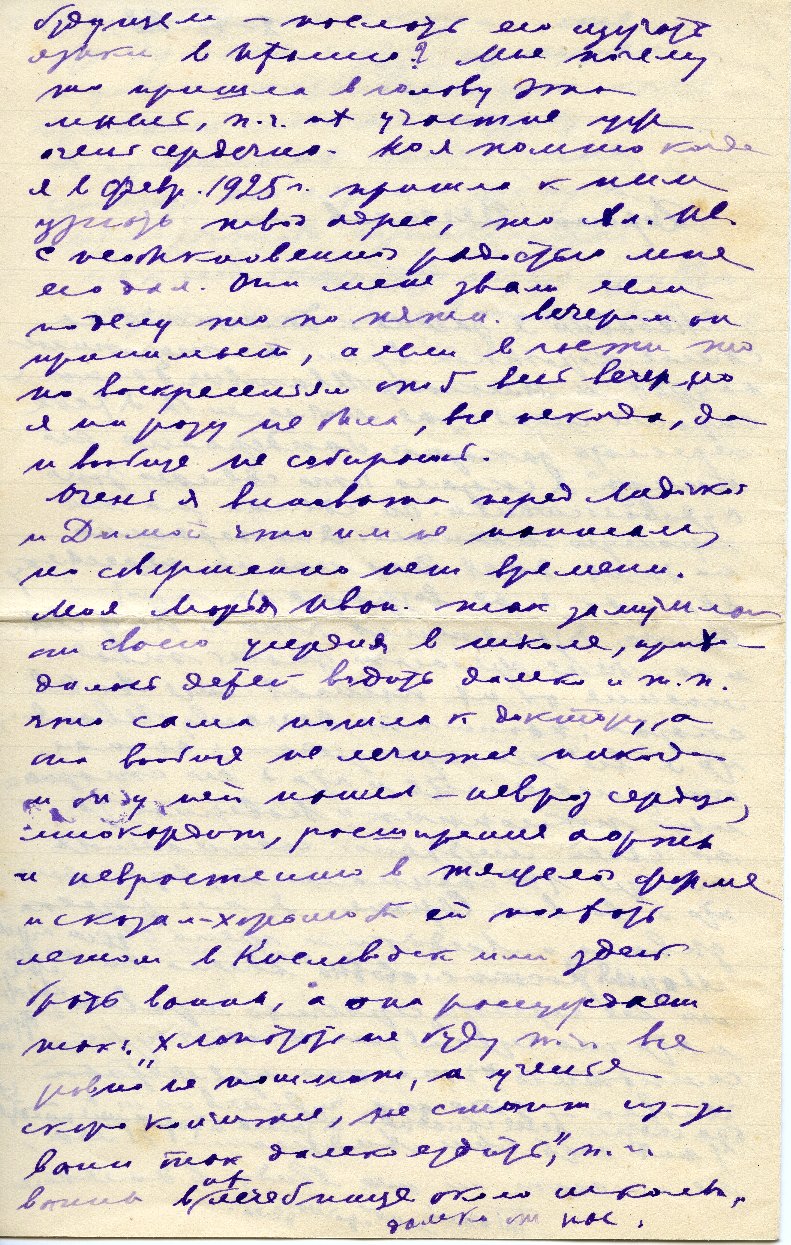 будущем – послать его изучать
языки в Италию? Мне почему
то пришла в голову эта
мысль, п.ч. их участие
очень сердечно. Но я помню когда
я в февр. 1925 г. пришла к ним
узнать твой адрес, то Ал. Ив.
с необыкновенной радостью мне
его дал. Они меня звали если
по делу то по пятн. вечером он
принимает, а если в гости то
по воскресеньям от 5 весь вечер, но
я ни разу не была, все некогда, да
и вообще не собираюсь.
Очень я виновата перед Лидочкой
и Димой что им не написала,
но совершенно нет времени.
Моя Марья Иван. так замучилась
от своего усердия в школе, прихо-
дилось детей водить далеко и т.п.
что сама пошла к доктору, а
она вообще не лечится никогда
и он у ней нашел – невроз сердца,
миокардит, расширение аорты
и неврастению в тяжелой форме
и сказал – хорошо б ей поехать
летом в Кисловодск или здесь
брать ванны, а она рассуждает
так: "хлопотать не буду п.ч. все
равно не пошлют, а ученье
скоро кончится, не стоит из-за
ванн так далеко ездить", п.ч.
ванны в их лечебнице около школы,
далеко от нас.